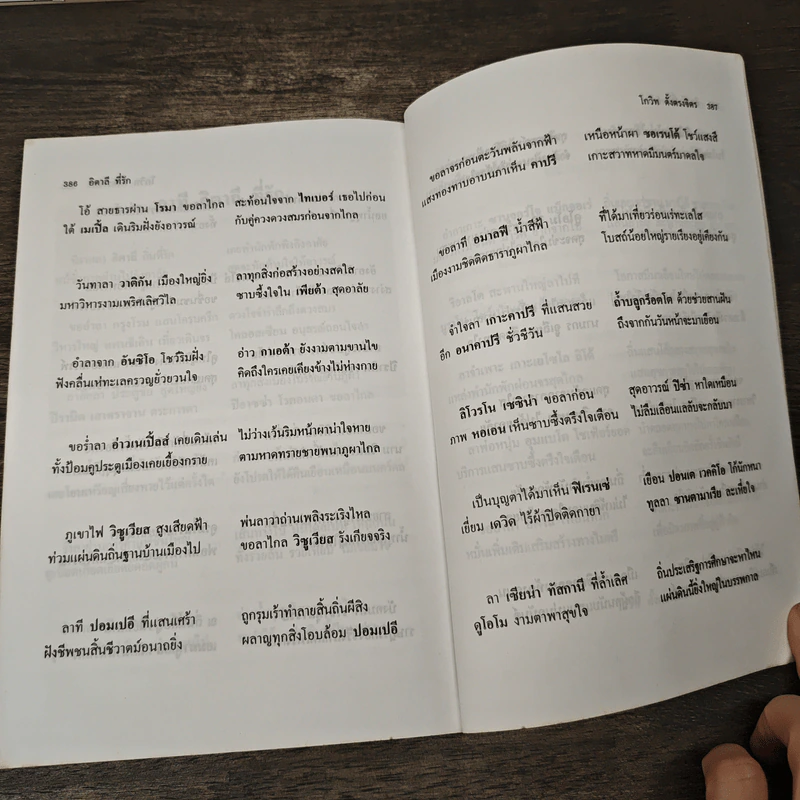 386 อิตาลี ที่รัก
โอ้ สายธารผ่าน โรมา ขอลาไกล สะท้อนใจจาก ไทเบอร์ เธอไปก่อน
ใต้ เมเปิ้ล เดินริมฝั่งยังอาวรณ์ กับคู่ควงดวงสมรก่อนจากไกล
วันทาลา วาติกัน เมืองใหญ่ยิ่ง ลาทุกสิ่งก่อสร้างอย่างสดใส
มหาวิหารงามเพริศเลิศวิไล ซาบซึ้งใจใน เพียต้า สุดอาลัย
อำลาจาก อันซิโอ โชว์ริมฝั่ง อ่าว กาเอต้า ยังงามตามขานไข
ฟังคลื่นเห่ทะเลครวญยั่วยวนใจ คิดถึงใครเคยเคียงข้างไม่ห่างกาย
ขอร่ำลา อ่าวเนเปิ้ลส์ เคยเดินเล่น ไม่ว่างเว้นริมหน้าผาน่าใจหาย
ทั้งป้อมคูประตูเมืองเคยเยื้องกราย ตามหาดทรายชายพนาภูผาไกล
ภูเขาไฟ วิซูเวียส สูงเสียดฟ้า พ่นลาวาถ่านเพลิงระเริงไหล
ท่วมแผ่นดินถิ่นฐานบ้านเมืองไป ขอลาไกล วิซูเวียส รังเกียจจริง
ลาที ปอมเปอี ที่แสนเศร้า ถูกรุมเร้าทำลายสิ้นถิ่นผีสิง
ฝังชีพชนสิ้นชีวาตม์อนาถยิ่ง ผลาญทุกสิ่งโอบล้อม ปอมเปอี
โกวิท ตั้งตรงจิตร 387
ขอลาจรก่อนตะวันพลันจากฟ้า เหนือหน้าผา ซอเรนโต้ โชว์แสงสี
แสงทองทาบอาบนภาเห็น คาปรี เกาะสวาทหาดมีมนตร์มาดลใจ
ขอลาที อมาลฟี น้ำสีฟ้า ที่ได้มาเที่ยวร่อนเร่ทะเลใส
เมืองงามชิดติดธาราภูผาไกล โบสถ์น้อยใหญ่รายเรียงอยู่เคียงกัน
จำใจลา เกาะคาปรี ที่แสนสวย ถ้ำบลูกร็อตโต ด้วยช่วยสานฝัน
อีก อนาคาปรี ชั่วชีวัน ถึงจากกันวันหน้าจะมาเยือน
ลิโวรโน เซซิน่า ขอลาก่อน สุดอาวรณ์ ปิซ่า หาใดเหมือน
ภาพ หอเอน เห็นซาบซึ้งตรึงใจเตือน ไม่ลืมเลือนแลลับจะกลับมา
เป็นบุญตาได้มาเห็น ฟิเรนเซ่ เยือน ปอนเต เวคคิโอ โก้นักหนา
เยี่ยม เดวิด ไร้ผ้าปิดติดกายา ทูลลา ซานตามาเรีย ละเพื่อใจ
ลา เซียน่า ทัสกานี ที่ล้ำเลิศ ถิ่นประเสริฐการศึกษาจะหาไหน
ดูโอโม งามตาพาสุขใจ แผ่นดินนี้ยิ่งใหญ่ในบรรพกาล